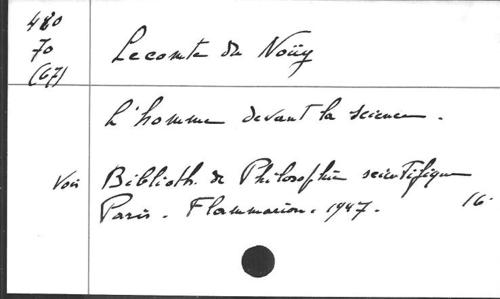 480
70
(67)
Lecomte du Noüy
L'homme devant la science.
Voir Biblioth. de Philosophie scientifique
Paris. Flammarion. 1947. 16.